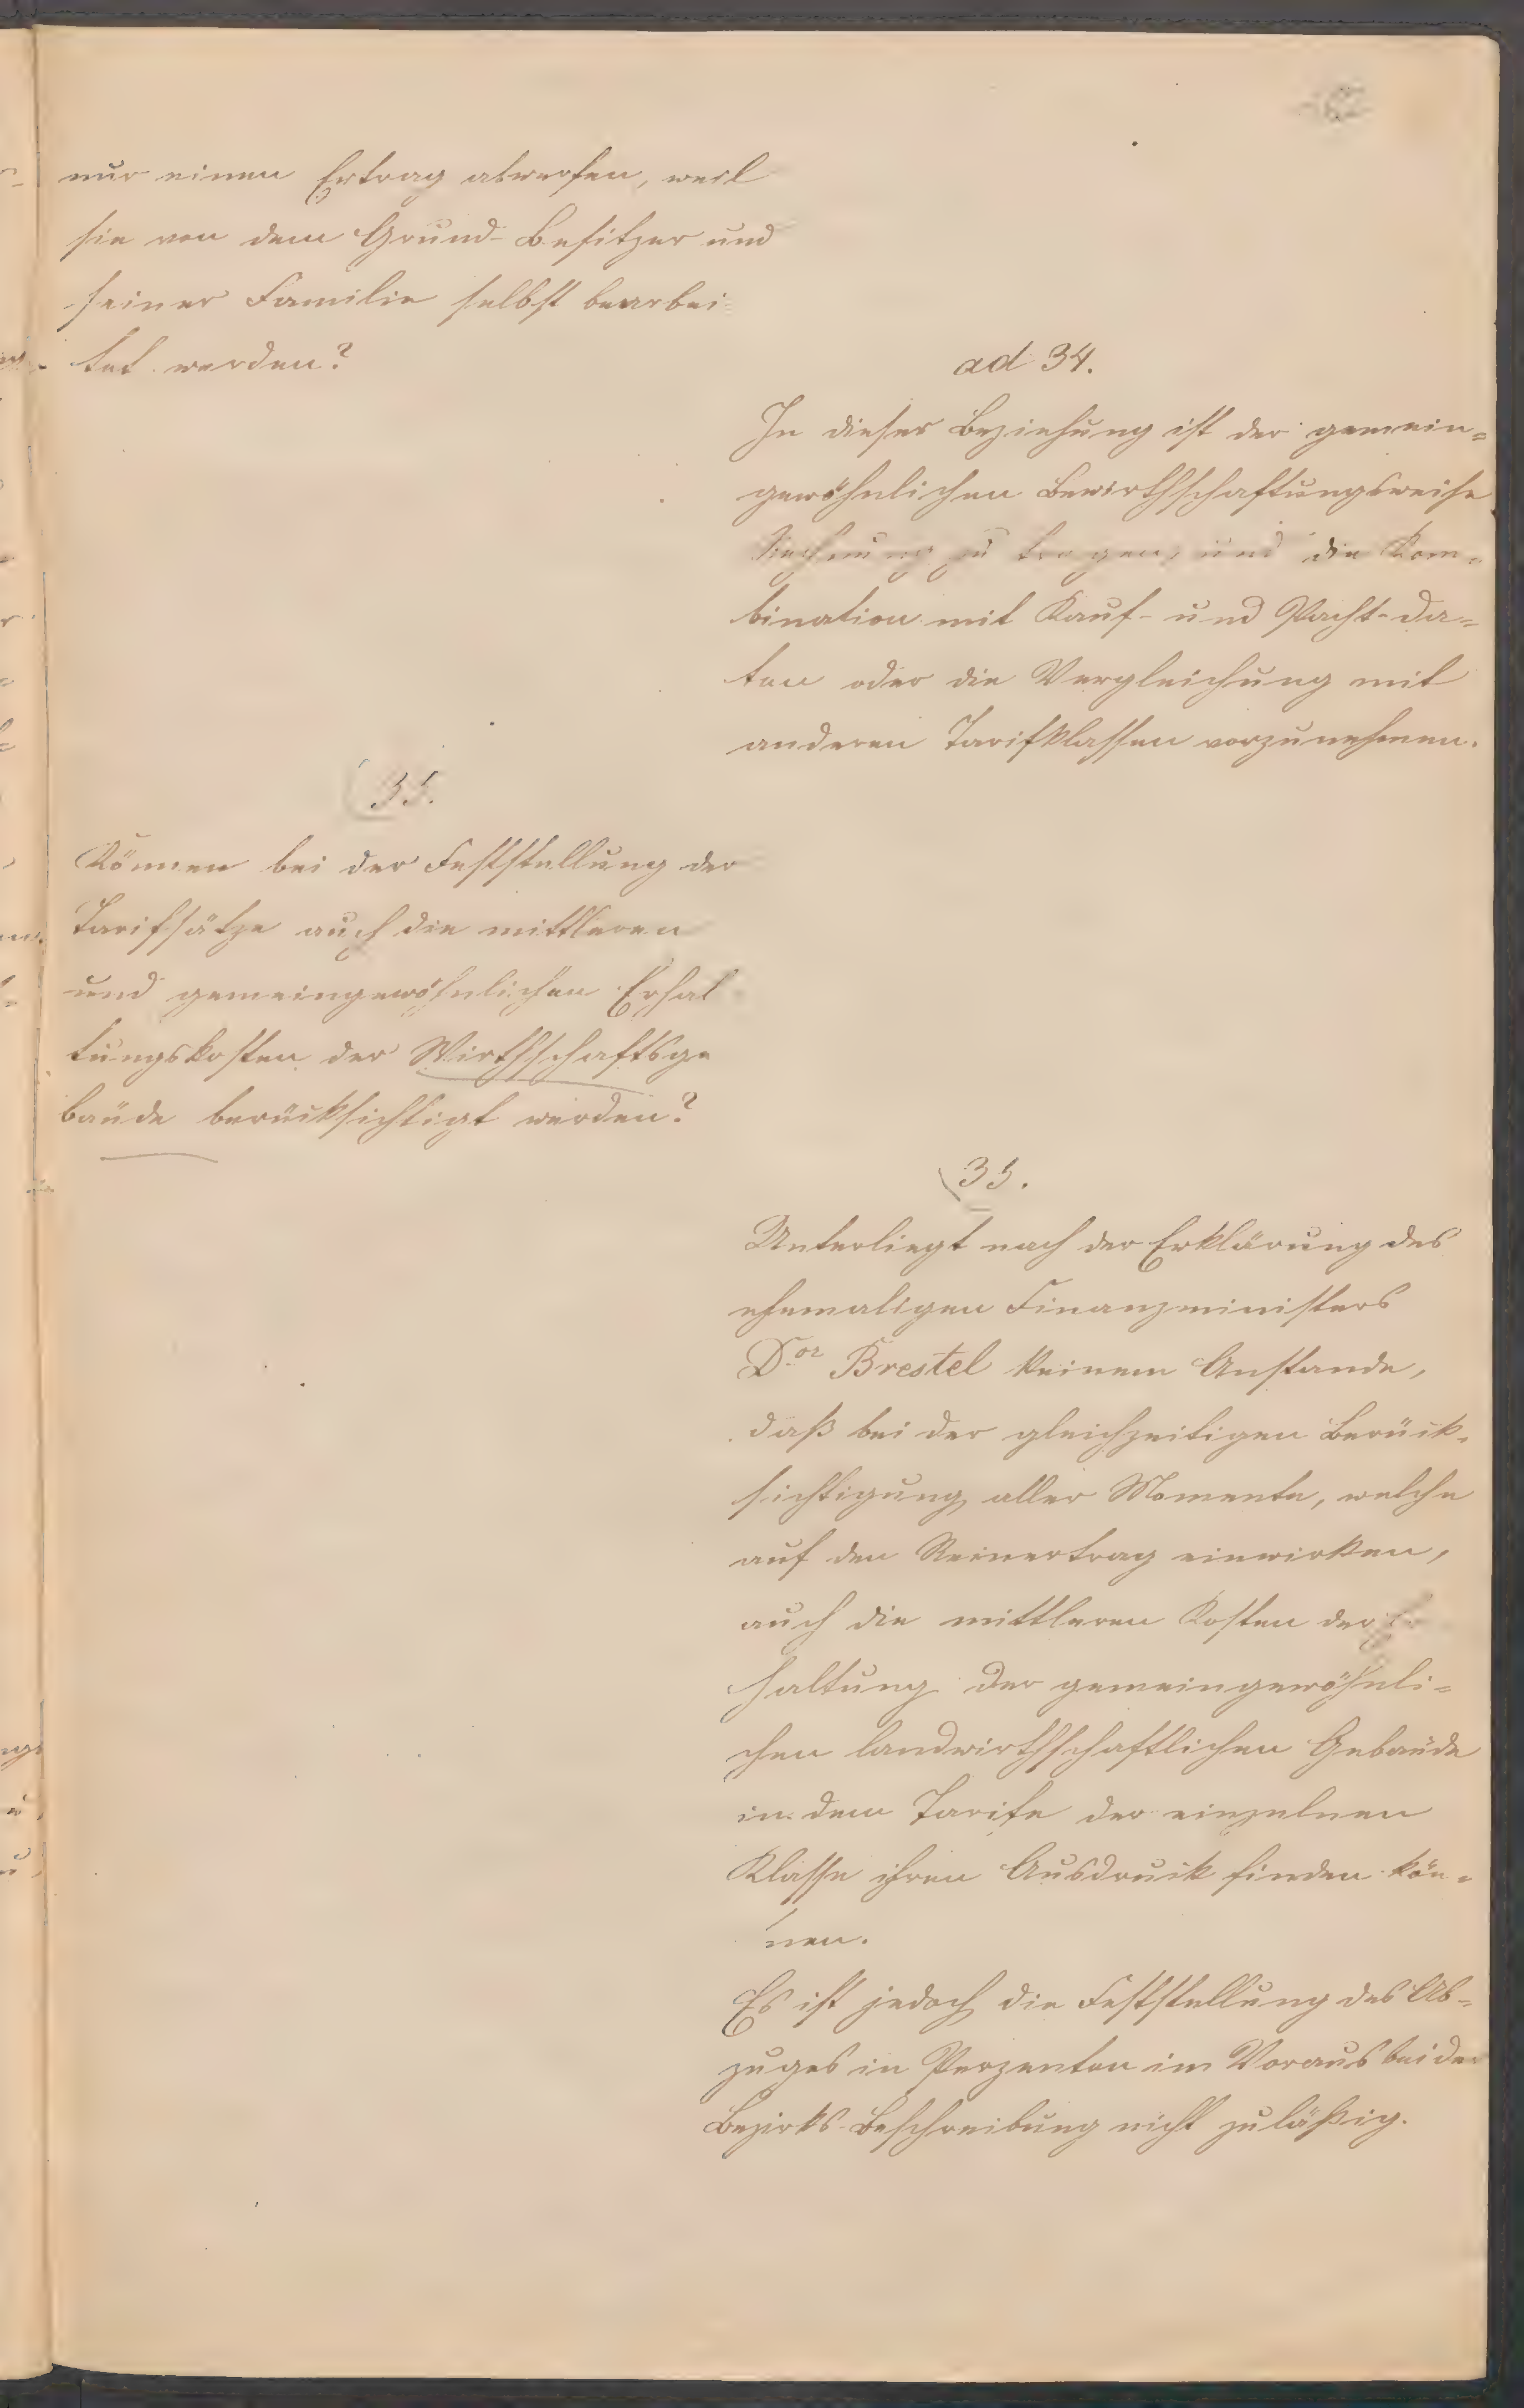 nur einen Ertrag abwerfen, weil
sie von dem Grund-Besitzer und
seiner Familie selbst bearbei-
tet werden?
ad 34.
In dieser Beziehung ist der gemein=
gewöhnlichen Bewirthschaftungsweise
Rechnung zu tragen, und die Kom=
bination mit Kauf- und Pacht-Da=
ten oder die Vergleichung mit
anderen Tarifklassen vorzunehmen.
35.
Können bei der Feststellung der
Tarifsätze auch die mittleren
und gemeingewöhnlichen Erhal
tungskosten der Wirthschaftsge
bäude berücksichtigt werden?
35.
Unterliegt nach der Erklärung des
ehemaligen Finanzministers
Dor Brestel keinem Anstande,
daß bei der gleichzeitigen Berück=
sichtigung aller Momente, welche
auf den Reinertrag einwirken,
auch die mittleren Kosten der Er
haltung der gemeingewöhnli=
chen landwirthschaftlichen Gebäude
in dem Tarife der einzelnen
Klasse ihren Ausdruck finden kön=
nen.
Es ist jedoch die Feststellung des Ab=
zuges in Perzenten im Voraus bei der
Bezirks-Beschreibung nicht zuläßig.